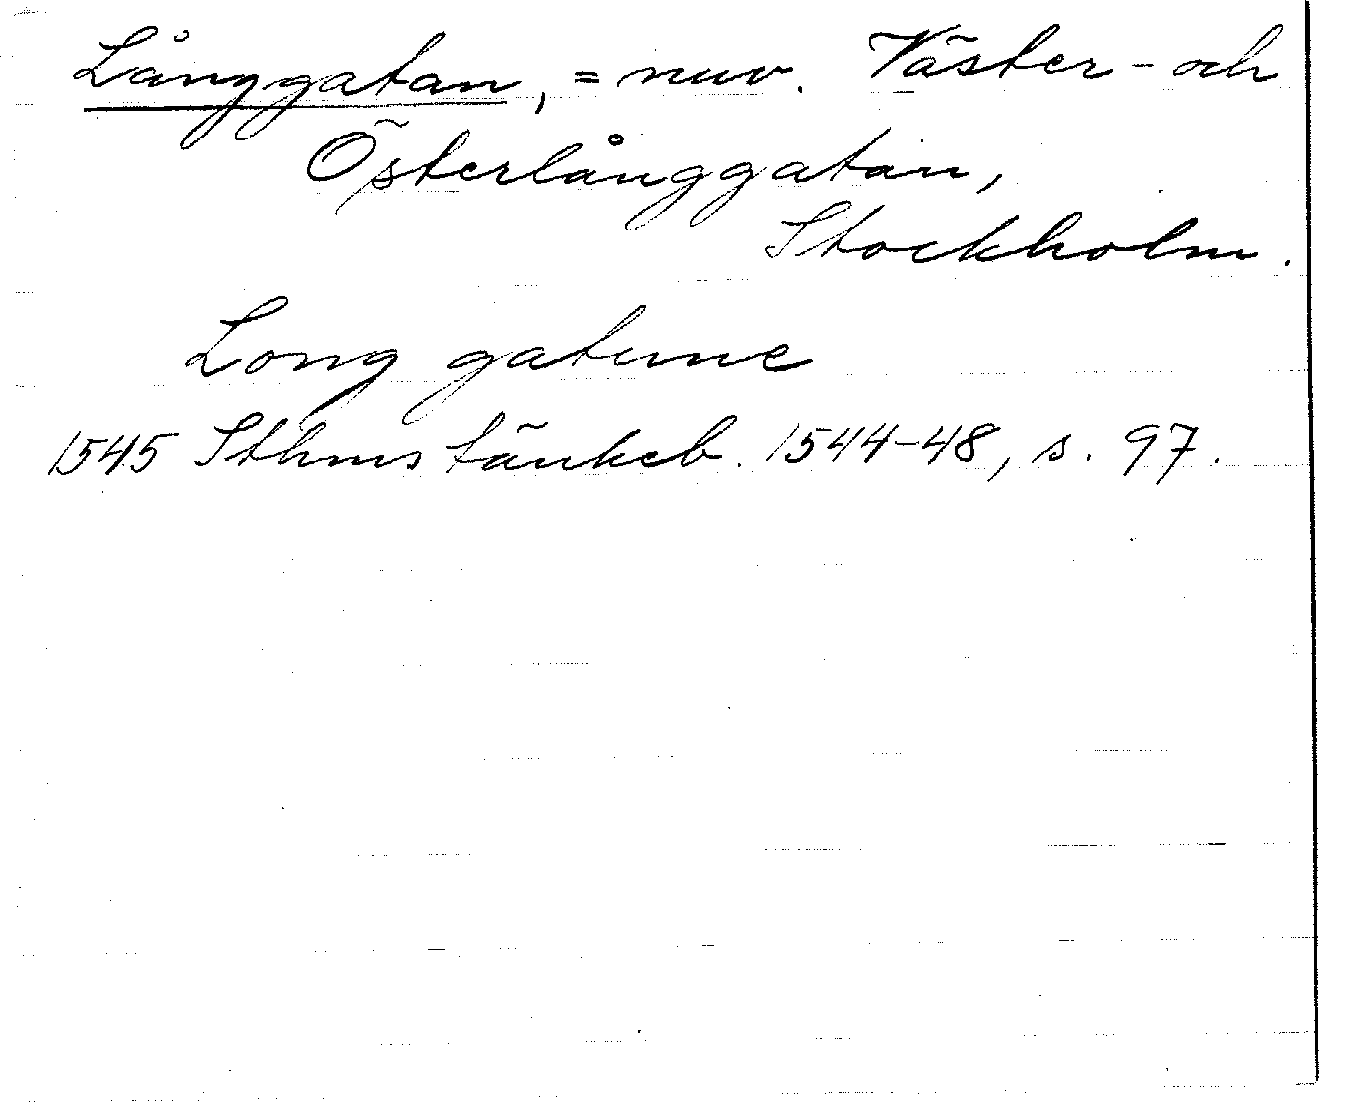 Långgatan, = nuv. Väster- och
Österlånggatan,
Stockholm.
Long gatune
1545 Sthms tänkeb. 1544-48, s. 97.